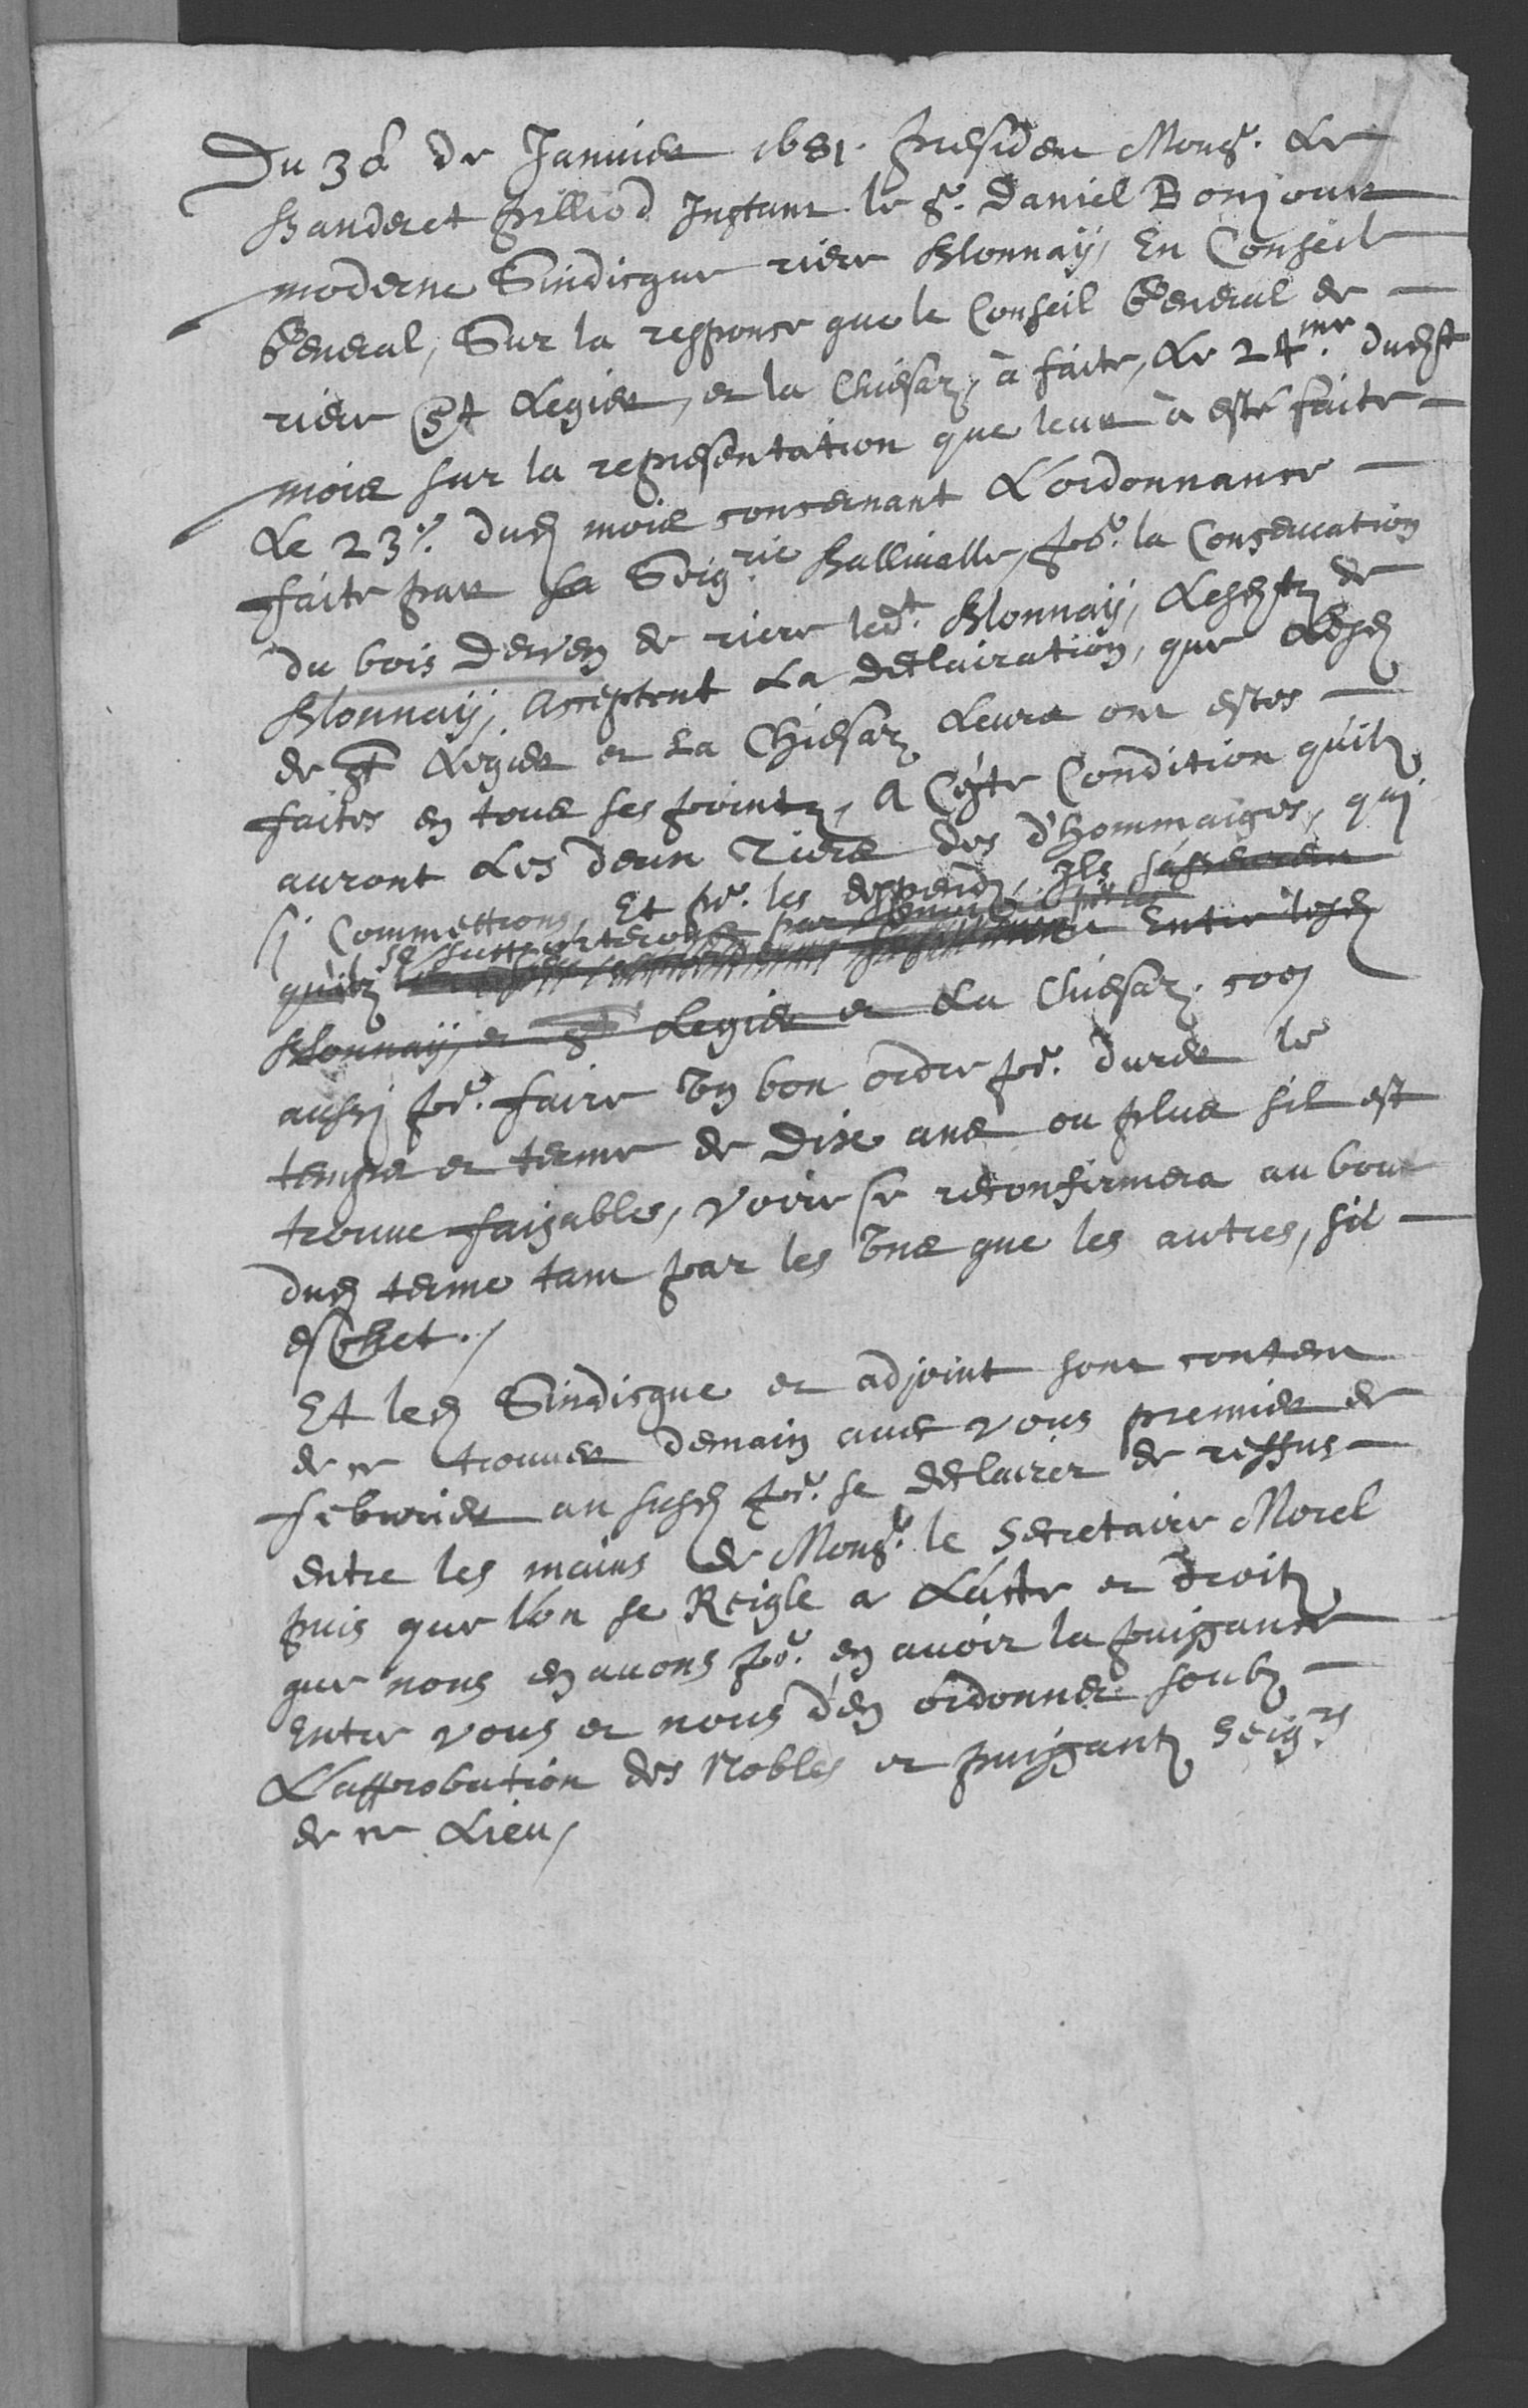 Du 3e. de Januier 1681. president Mons.r Le
Banderet pilliod Instant le s.r Daniel Bonjour
moderne Sindicque riere Blonnaÿ, En Conseil
General, Sur la responce que le Conseil General de
riere St Legier, et la Chiesaz, à faite, Le 24me. dudst
mois sur la representation que leur à esté faite
Le 23e. dud mois concernant L'ordonnance
faite par sa Seig.rie Ballivalle, po.r la Conseruation
du bois Derven de riere led.t Blonnaÿ, Lesdst de
Blonnaÿ, Acceptent La declairation, que Lesd
de st Legier et La Chiesaz Leurs ont estes
faites en tous ses points, A Ceste Condition quilz
auront Les deux Tiers des d'hommaiges, qui
si Commettrons, Et po.r les despends, Ils
se supporteront par
quilz Entre lesd
Blonnaÿ, et st Legier et La Chiesaz. coe
aussi po.r faire Vn bon ordre po.r durer le
temps et terme de Dixe ans ou plus sil est
trouue faisable, voire se reconfirmera au bout
dud terme tant par les Vns que les autres, sil
eschet./
Et led Sindicque et adjoint sont content
de ce trouuer demain auec vous premier de
febvrier au susd po.r se declairer de ressus
entre les mains de Mons.r le Secretaire Morel
puis que lon se Reigle a L'acte et droitz
que nous en auons po.r en auoir la puissance
Entre vous et nous d'en ordonner soubz
L'approbation des Nobles et puissantz Seigrs
de ce Lieu/